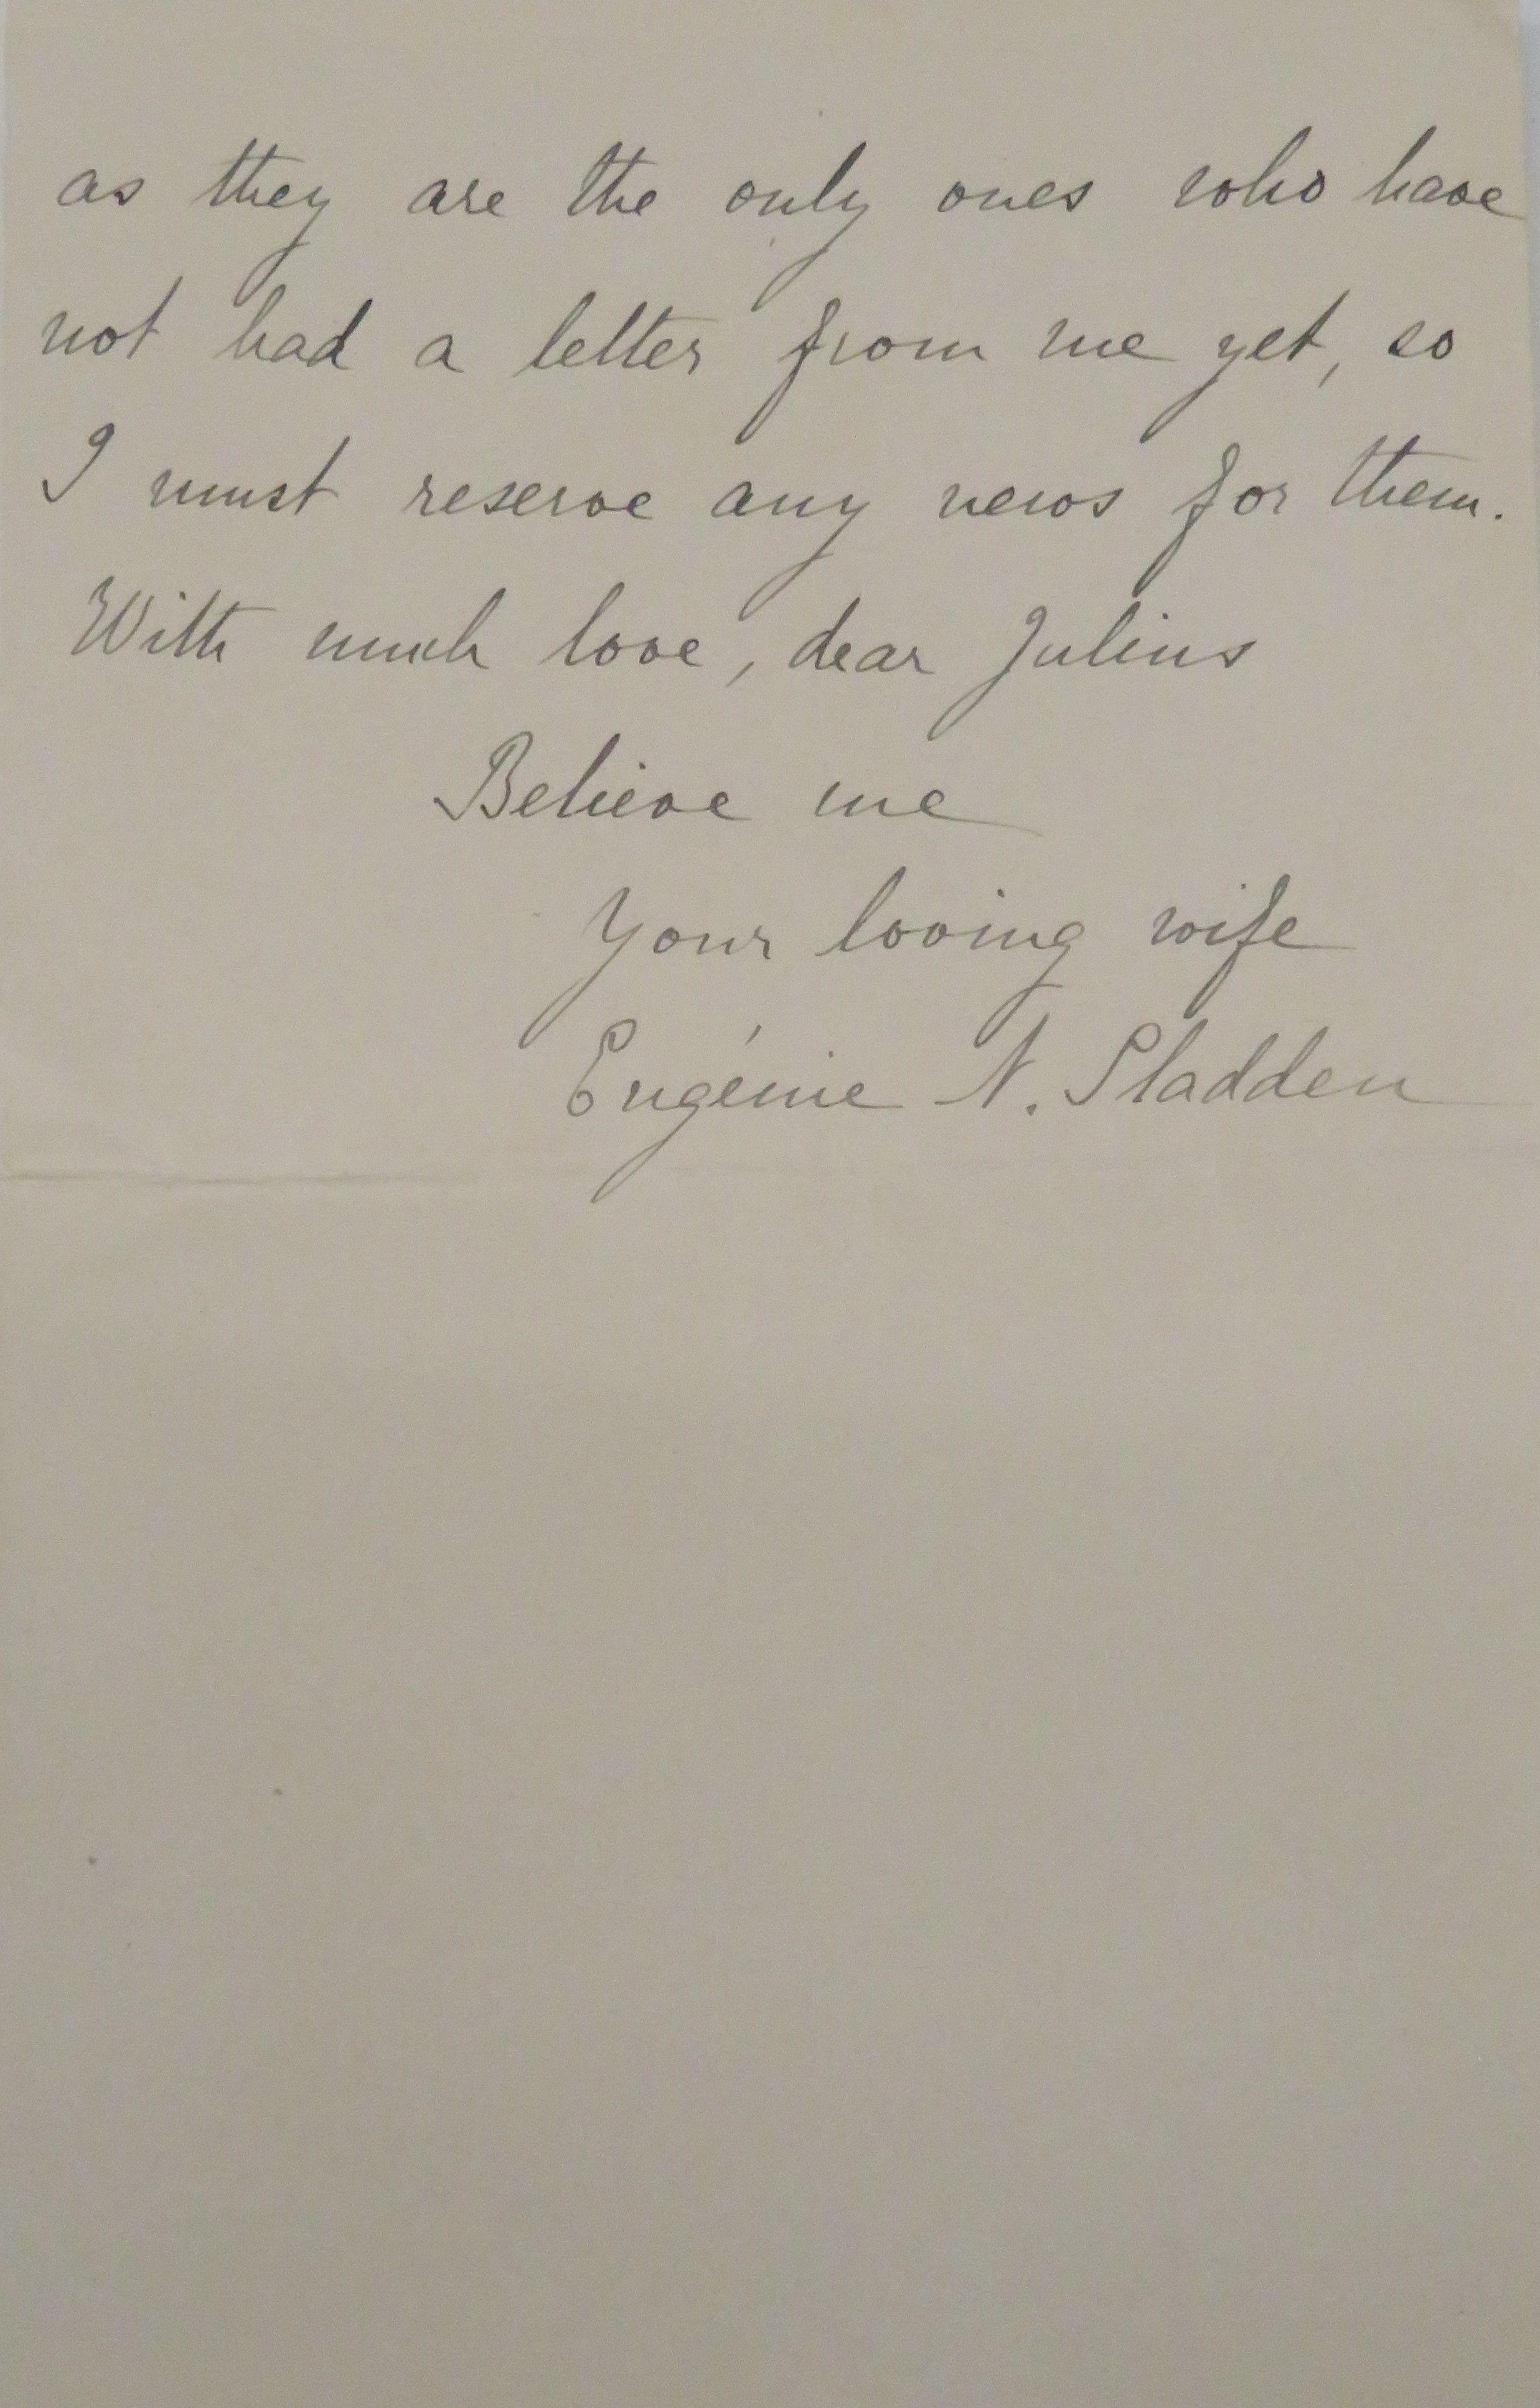 as they are the only ones who have
not had a letter from me yet, so
I must reserve any news for them.
With much love, dear Julius
Believe me
Your loving wife
Eugénie N. Sladden